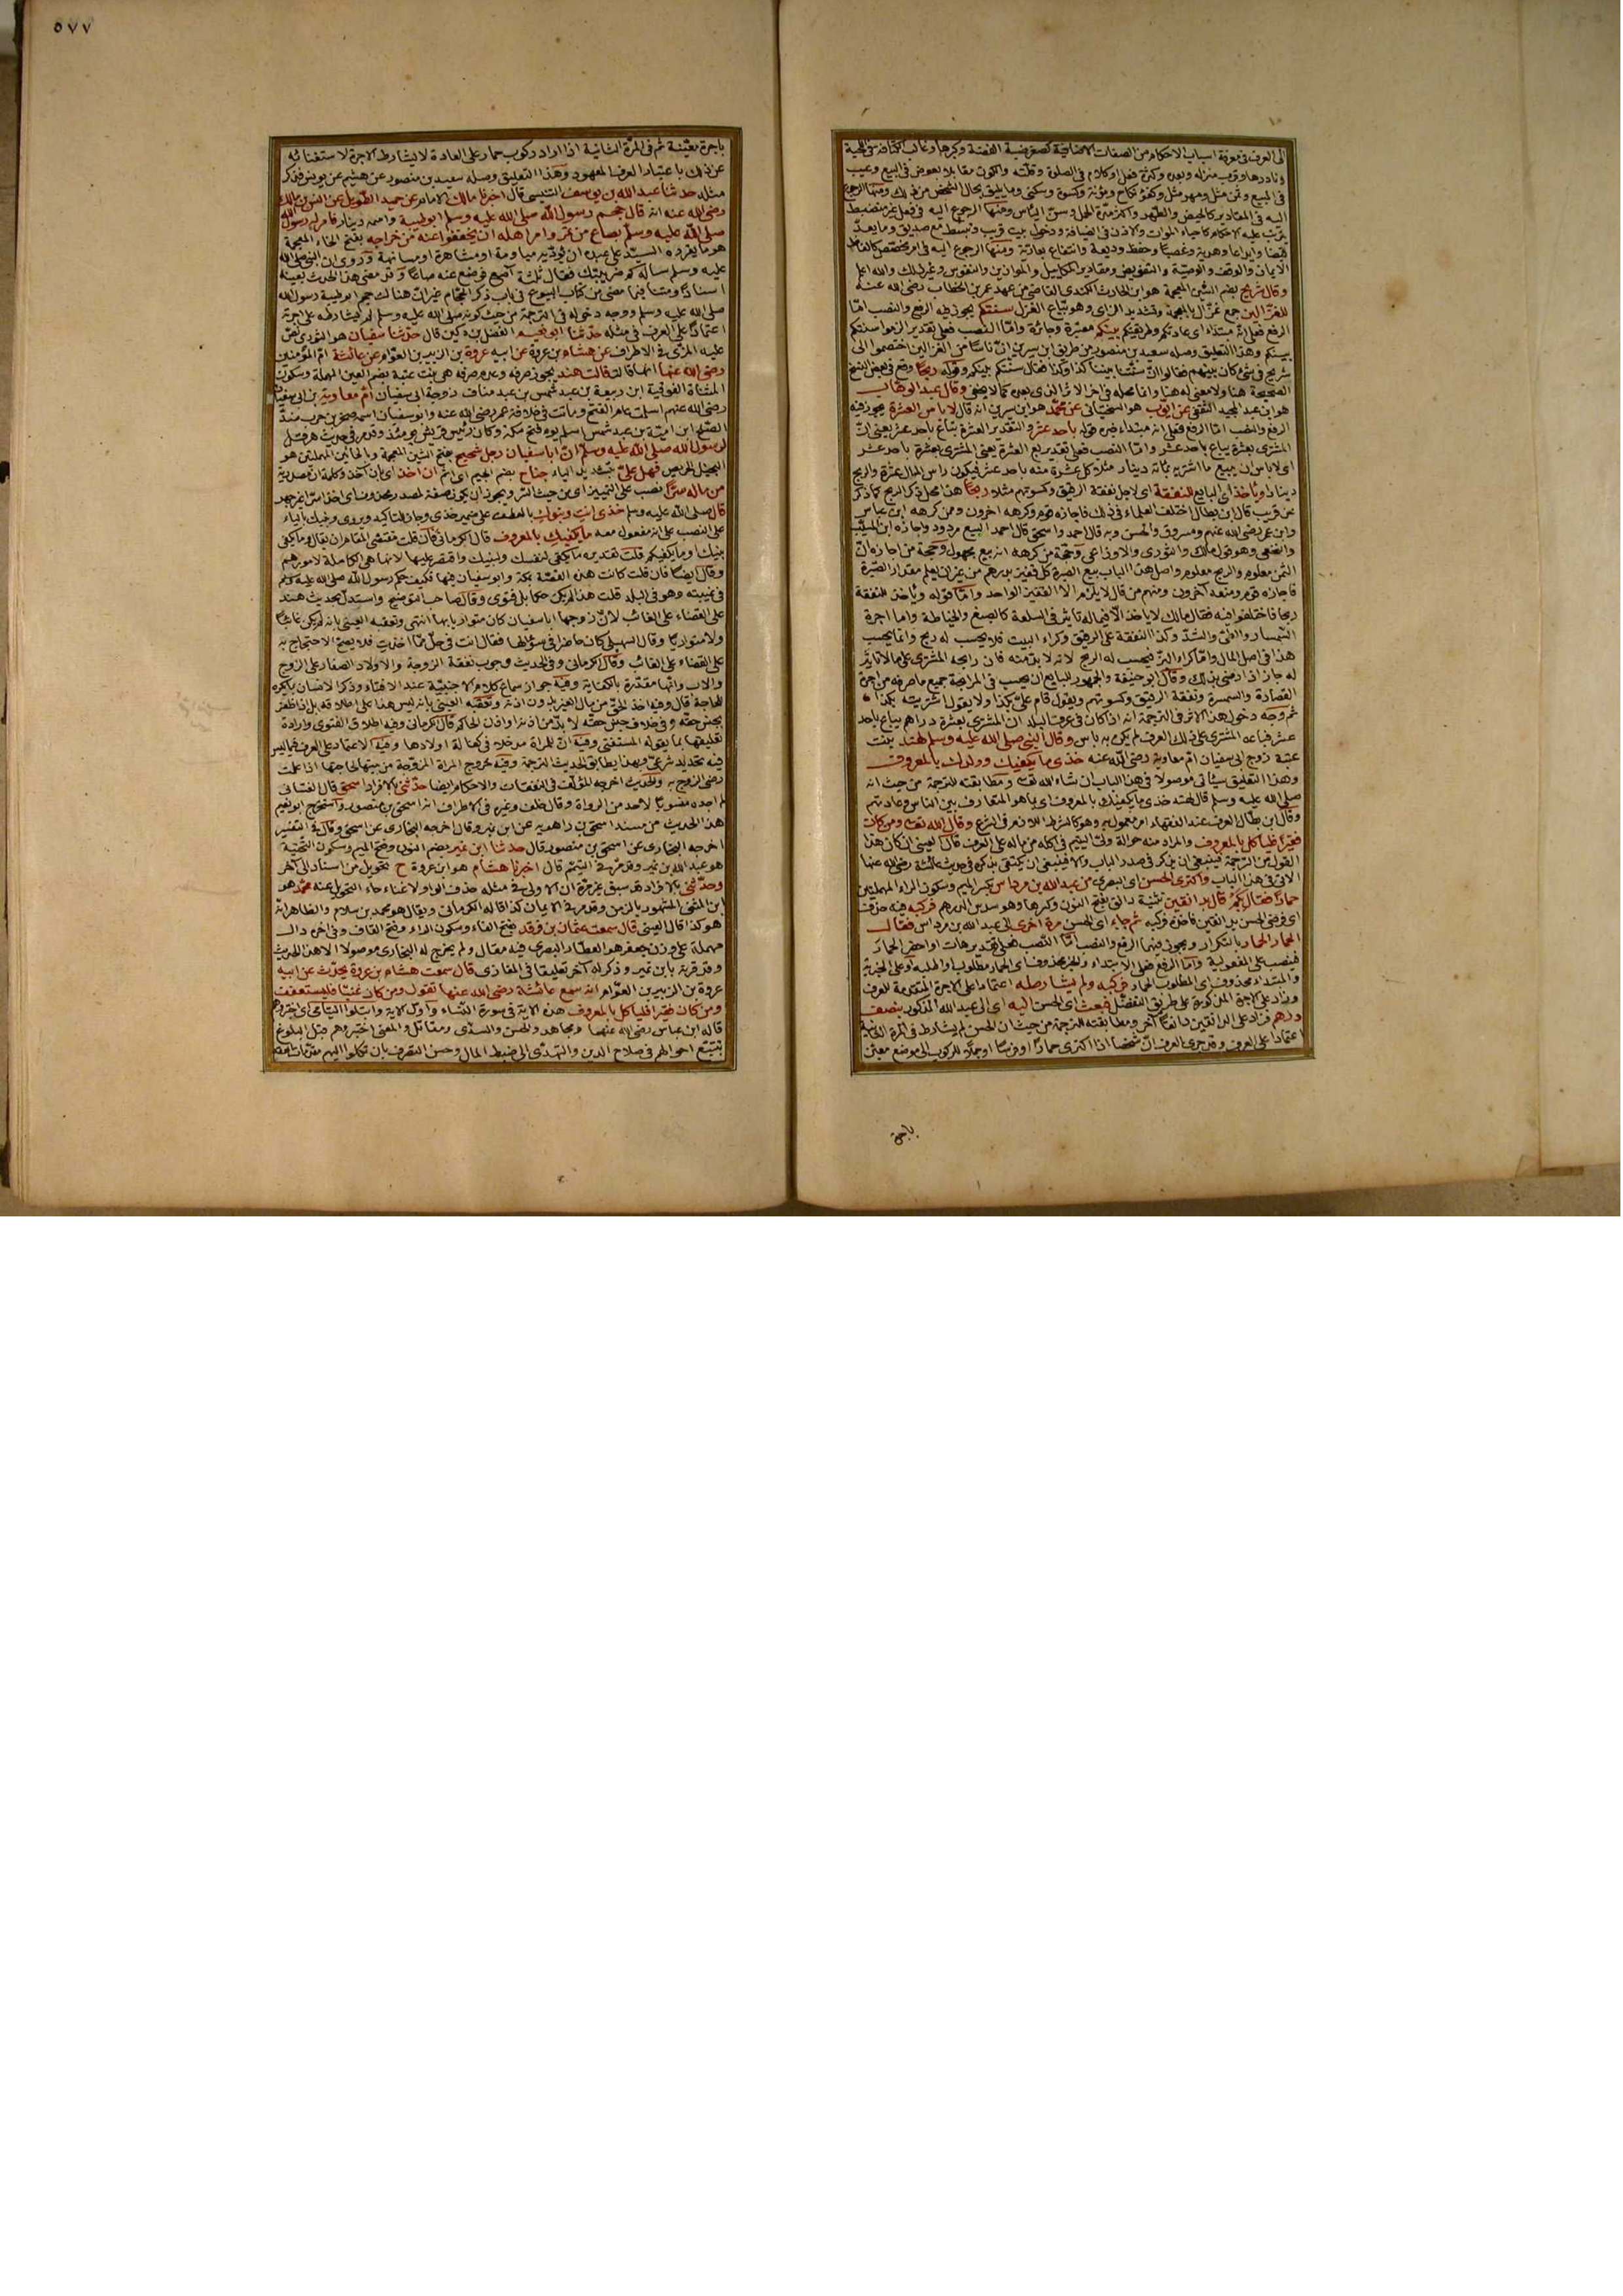 الى العرف في معرفة اسباب الاحكام من الصفات الاضافية كصغر ضبة الفضة وكبرها وغالب الكثافة في اللحية
ونادرها وقرب منزله وبعده وكثرة فعل او كلام في الصلوة وقلته وكون مقابلا بعوض في البيع وعيب
في المبيع وثمن مثل ومهر مثل وكفؤ نكاح ومؤنة وكسوة وسكنى وما يليق بحال الشخص من ذلك ومنها الرجوع
اليه في المقادير كالحيض والطهر واكثر مدة الحمل وسن اليأس ومنها الرجوع اليه في فعل غير منضبط
يترتب عليه الاحكام كاحياء الموات والاذن في الضيافة ودخول بيت قريب وتبسط مع صديق وما يعد
قبضا وايداعا وهدية وغصبا وحفظ وديعة وانتفاع بعارية ومنها الرجوع اليه في امر مخصص كالفاظ
الايمان والوقف والوصية والتفويض ومقادير المكاييل والموازين والنقود وغير ذلك والله اعلم
وقال شريح بضم الشين المعجمة هو ابن الحارث الكندي القاضي من عهد عمر بن الخطاب رضي الله عنه
للغزالين جمع غزال بالمعجمة وتشديد الزاي وهو بياع الغزل سنتكم يجوز فيه الرفع والنصب اما
الرفع فعلى انه مبتداء اى عادتكم وطريقتكم بينكم معتبرة وجائزة واما النصب فعلى تقدير الزموا سنتكم
بينكم وهذا التعليق وصله سعيد بن منصور من طريق ابن سيرين ان ناسا من الغزالين اختصموا الى
شريح في شئ كان بينهم فقالوا ان سنتنا بيننا كذا وكذا فقال سنتكم بينكم وقوله ربحا وقع في بعض النسخ
الصحيحة هنا ولا معنى له هنا وانما محله في اخر الاثر الذي بعده كما لا يخفى وقال عبد الوهاب
هو ابن عبد المجيد الثقفي عن ايوب هو السختياني عن محمد هو ابن سيرين انه قال لا باس العشرة يجوز فيه
الرفع والنصب اما الرفع فعلى انه مبتداء خبره قوله باحد عشر والتقدير العشرة تباع باحد عشر يعني ان
المشترى بعشرة يباع باحد عشر واما النصب فعلى تقدير بع العشرة يعني المشترى بعشرة باحد عشر
اى لا باس ان يبيع ما اشتريه بمائة دينار مثلا كل عشرة منه باحد عشر فيكون راس المال عشرة والربح
دينار وياخذ اى البايع للنفقة اى لاجل نفقة الرقيق وكسوتهم مثلا ربحا هذا محل ذكر الربح كما ذكر
عن قريب قال ابن بطال اختلف العلماء في ذلك فاجازه قوم وكرهه اخرون وممن كرهه ابن عباس
وابن عمر رضي الله عنهم ومسروق والحسن وبه قال احمد واسحق قال احمد البيع مردود واجازه ابن المسيب
والنخعي وهو قول مالك والثوري والاوزاعي وحجة من كرهه انه بيع مجهول وحجة من اجازه ان
الثمن معلوم والربح معلوم واصل هذا الباب بيع الصبرة كل قفيز بدرهم من غير ان يعلم مقدار الصبرة
فاجازه قوم ومنعه آخرون ومنهم من قال لا يلزم الا القفيز الواحد واما قوله وياخذ للنفقة
ربحا فاختلفوا فيه فقال مالك لا ياخذ الا فيما له تاثير في السلعة كالصبغ والخياطة واما اجرة
السمسار والطي والشد وكذا النفقة على الرقيق وكراء البيت فلا يحسب له ربح وانما يحسب
هذا في اصل المال واما كراء البز فيحسب له الربح لانه لا بد منه فان رابحه المشترى على ما لا تاثير
له جاز اذا رضى بذلك وقال ابو حنيفة والجمهور للبايع ان يحسب في المرابحة جميع ما صرفه من اجرة
القصارة والسمسرة ونفقة الرقيق وكسوتهم ويقول قام علي بكذا ولا يقول اشتريته بكذا
ثم وجه دخول هذا الاثر في الترجمة انه اذا كان في عرف البلد ان المشترى بعشرة دراهم يباع باحد
عشر فباعه المشترى على ذلك العرف لم يكن به باس وقال النبي صلى الله عليه وسلم لهند بنت
عتبة زوج ابي سفيان ام معاوية رضي الله عنه خذي ما يكفيك وولدك بالمعروف
وهذا التعليق سيأتي موصولا في هذا الباب ان شاء الله تعالى ومطابقته للترجمة من حيث انه
صلى الله عليه وسلم قال لهند خذي ما يكفيك بالمعروف اى بما هو المتعارف بين الناس وعادتهم
وقال ابن بطال العرف عند الفقهاء امر معمول به وهو كالشرط اللازم في الشرع وقال الله تعالى ومن كان
فقيرا فلياكل بالمعروف والمراد منه حوالة ولى اليتيم في اكله من ماله على العرف قال العيني ان كان هذا
القول من الترجمة فينبغي ان يذكر في صدر الباب والا فينبغي ان يكتفي بذكره في حديث عائشة رضي الله عنها
الاتي في هذا الباب واكترى الحسن اى البصرى من عبد الله بن مرداس بكسر الميم وسكون الراء والمهملتين
حمارا فقال بكم قال بدانقين تثنية دانق بفتح النون وكسرها وهو سدس الدرهم فركبه فيه حذف
اى فرضي الحسن بدانقين فاخذه فركبه ثم جاء اى الحسن مرة اخرى الى عبد الله بن مرداس فقال
الحمار الحمار بالتكرار ويجوز فيهما الرفع والنصب اما النصب فعلى تقدير هات او احضر الحمار
فينصب على المفعولية واما الرفع فعلى الابتداء والخبر محذوف اى الحمار مطلوب او اطلبه او على الخبرية
والمبتداء محذوف اى المطلوب الحمار فركبه ولم يشارطه اعتمادا على الاجرة المتقدمة للعرف
وزاد على الاجرة المذكورة على طريق التفضل فبعث اى الحسن اليه اى الى عبد الله المذكور بنصف
درهم فزاد على الدانقين دانقا آخر ومطابقته للترجمة من حيث ان الحسن لم يشارطه في المرة الثانية
اعتمادا على العرف وقد جرى العرف ان شخصا اذا اكترى حمارا او فرسا او جملا للركوب الى موضع معين
باجرة
٥٧٧
باجرة معينة ثم في المرة الثانية اذا اراد ركوب حمار على العادة لا يشارط الاجرة لاستغنائه
عن ذلك باعتبار العرف المعهود وهذا التعليق وصله سعيد بن منصور عن هشيم عن يونس فذكر
مثله حدثنا عبد الله بن يوسف التنيسي قال اخبرنا مالك الامام عن حميد الطويل عن انس بن مالك
رضي الله عنه انه قال حجم رسول الله صلى الله عليه وسلم ابو طيبة واسمه دينار فامر له رسول الله
صلى الله عليه وسلم بصاع من تمر وامر اهله ان يخففوا عنه من خراجه بفتح الخاء المعجمة
هو ما يقرره السيد على عبده ان يؤديه مياومة او مشاهرة او مسانهة وروى ان النبي صلى الله
عليه وسلم ساله كم ضريبتك فقال ثلثة آصع فوضع عنه صاعا وقد مضى هذا الحديث بعينه
اسنادا ومتنا فيما مضى من كتاب البيوع في باب ذكر الحجام غير ان هناك حجم ابو طيبة رسول الله
صلى الله عليه وسلم ووجه دخوله في الترجمة من حيث كونه صلى الله عليه وسلم لم يشارطه على اجرته
اعتمادا على العرف في مثله حدثنا ابو نعيم الفضل بن دكين قال حدثنا سفيان هو الثوري نص
عليه المزي في الاطراف عن هشام بن عروة عن ابيه عروة بن الزبير بن العوام عن عائشة ام المؤمنين
رضي الله عنها انها قالت قالت هند يجوز صرفه وعدم صرفه هي بنت عتبة بضم العين المهملة وسكون
المثناة الفوقية ابن ربيعة بن عبد شمس بن عبد مناف زوجة ابي سفيان ام معاوية بن ابي سفيان
رضي الله عنهم اسلمت عام الفتح وماتت في خلافة عمر رضي الله عنه وابو سفيان اسمه صخر بن حرب ضد
الصلح ابن امية بن عبد شمس اسلم يوم فتح مكة وكان رئيس قريش يومئذ وقد مر في حديث هرقل
لرسول الله صلى الله عليه وسلم ان ابا سفيان رجل شحيح بفتح الشين المعجمة وبالحائين المهملتين هو
البخيل الحريص فهل علي بتشديد الياء جناح بضم الجيم اى اثم ان اخذ اى بان آخذ وكلمة ان مصدرية
من ماله سرا نصب على التمييز اى من حيث السر ويجوز ان يكون صفة لمصدر محذوف اى اخذا سرا غير جهر
قال صلى الله عليه وسلم خذي انت وبنوك بالعطف على ضمير خذي وجاز للتاكيد ويروى وبنيك بالياء
على النصب على انه مفعول معه ما يكفيك بالمعروف قال الكرماني فان قلت مقتضى الظاهر ان يقال وما يكفي
بنيك او ما يكفيكم قلت تقديره ما يكفي لنفسك ولبنيك واقتصر عليها لانها هي الكاملة لامورهم
وقال ايضا فان قلت كانت هذه القصة بمكة وابو سفيان فيها فكيف حكم رسول الله صلى الله عليه وسلم
في غيبته وهو في البلد قلت هذا لم يكن حكما بل فتوى وقال صاحب التوضيح واستدل بحديث هند
على القضاء على الغائب لان زوجها ابا سفيان كان متواريا بها انتهى وتعقبه العيني بانه لم يكن غائبا
ولا متواريا وقال السهيلي كان حاضرا في سؤالها فقال انت في حل مما اخذت فلا يصح الاحتجاج به
على القضاء على الغائب وقال الكرماني وفي الحديث وجوب نفقة الزوجة والاولاد الصغار على الزوج
والاب وانها مقدرة بالكفاية وفيه جواز سماع كلام الاجنبية عند الافتاء وذكر الانسان بما يكره
للحاجة قال وفيه اخذ الحق من مال الغير بدون اذنه وتعقبه العيني بانه ليس هذا على اطلاقه بل اذا ظفر
بجنس حقه وفي خلاف جنس حقه لا بد من اذنه او اذن الحاكم قال الكرماني وفيه اطلاق الفتوى وارادة
تعليقها بما يقوله المستفتي وفيه ان للمراة مدخلا في كفالة اولادها وفيه الاعتماد على العرف فيما ليس
فيه تحديد شرعي وبهذا يطابق الحديث الترجمة وفيه خروج المراة المزوجة من بيتها لحاجتها اذا علمت
رضى الزوج به والحديث اخرجه المؤلف في النفقات والاحكام ايضا حدثني بالافراد اسحق قال الغساني
لم اجده منسوبا لاحد من الرواة وقال خلف وغيره في الاطراف انه اسحق بن منصور واستخرج ابو نعيم
هذا الحديث من مسند اسحق بن راهويه عن ابن نمير وقال اخرجه البخاري عن اسحق وقال في التفسير
اخرجه البخاري عن اسحق بن منصور قال حدثنا ابن نمير بضم النون وفتح الميم وسكون التحتية
هو عبد الله بن نمير وقد مر في التيمم قال اخبرنا هشام هو ابن عروة ح تحويل من اسناد الى آخر
وحدثني بالافراد وقد سبق غير مرة ان الاولى في مثله حذف الواو لاغناء حاء التحويل عنه محمد هو
ابن المثنى المشهور بالزمن وقد مر في الايمان كذا قاله الكرماني ويقال هو محمد بن سلام والظاهر انه
هو كذا قال العيني قال سمعت عثمان بن فرقد بفتح الفاء وسكون الراء وفتح القاف وفي اخره دال
مهملة على وزن جعفر هو العطار البصري فيه مقال ولم يخرج له البخاري موصولا الا هذا الحديث
وقد قرنه بابن نمير وذكر له آخر تعليقا في المغازي قال سمعت هشام بن عروة يحدث عن ابيه
عروة بن الزبير بن العوام انه سمع عائشة رضي الله عنها تقول ومن كان غنيا فليستعفف
ومن كان فقيرا فلياكل بالمعروف هذه الاية في سورة النساء واول الاية وابتلوا اليتامى اى اختبروهم
قاله ابن عباس رضي الله عنهما ومجاهد والحسن والسدي ومقاتل والمعنى اختبروهم قبل البلوغ
بتتبع احوالهم في صلاح الدين والتهدى الى ضبط المال وحسن التصرف بان تكلوا اليهم مقدمات العقد